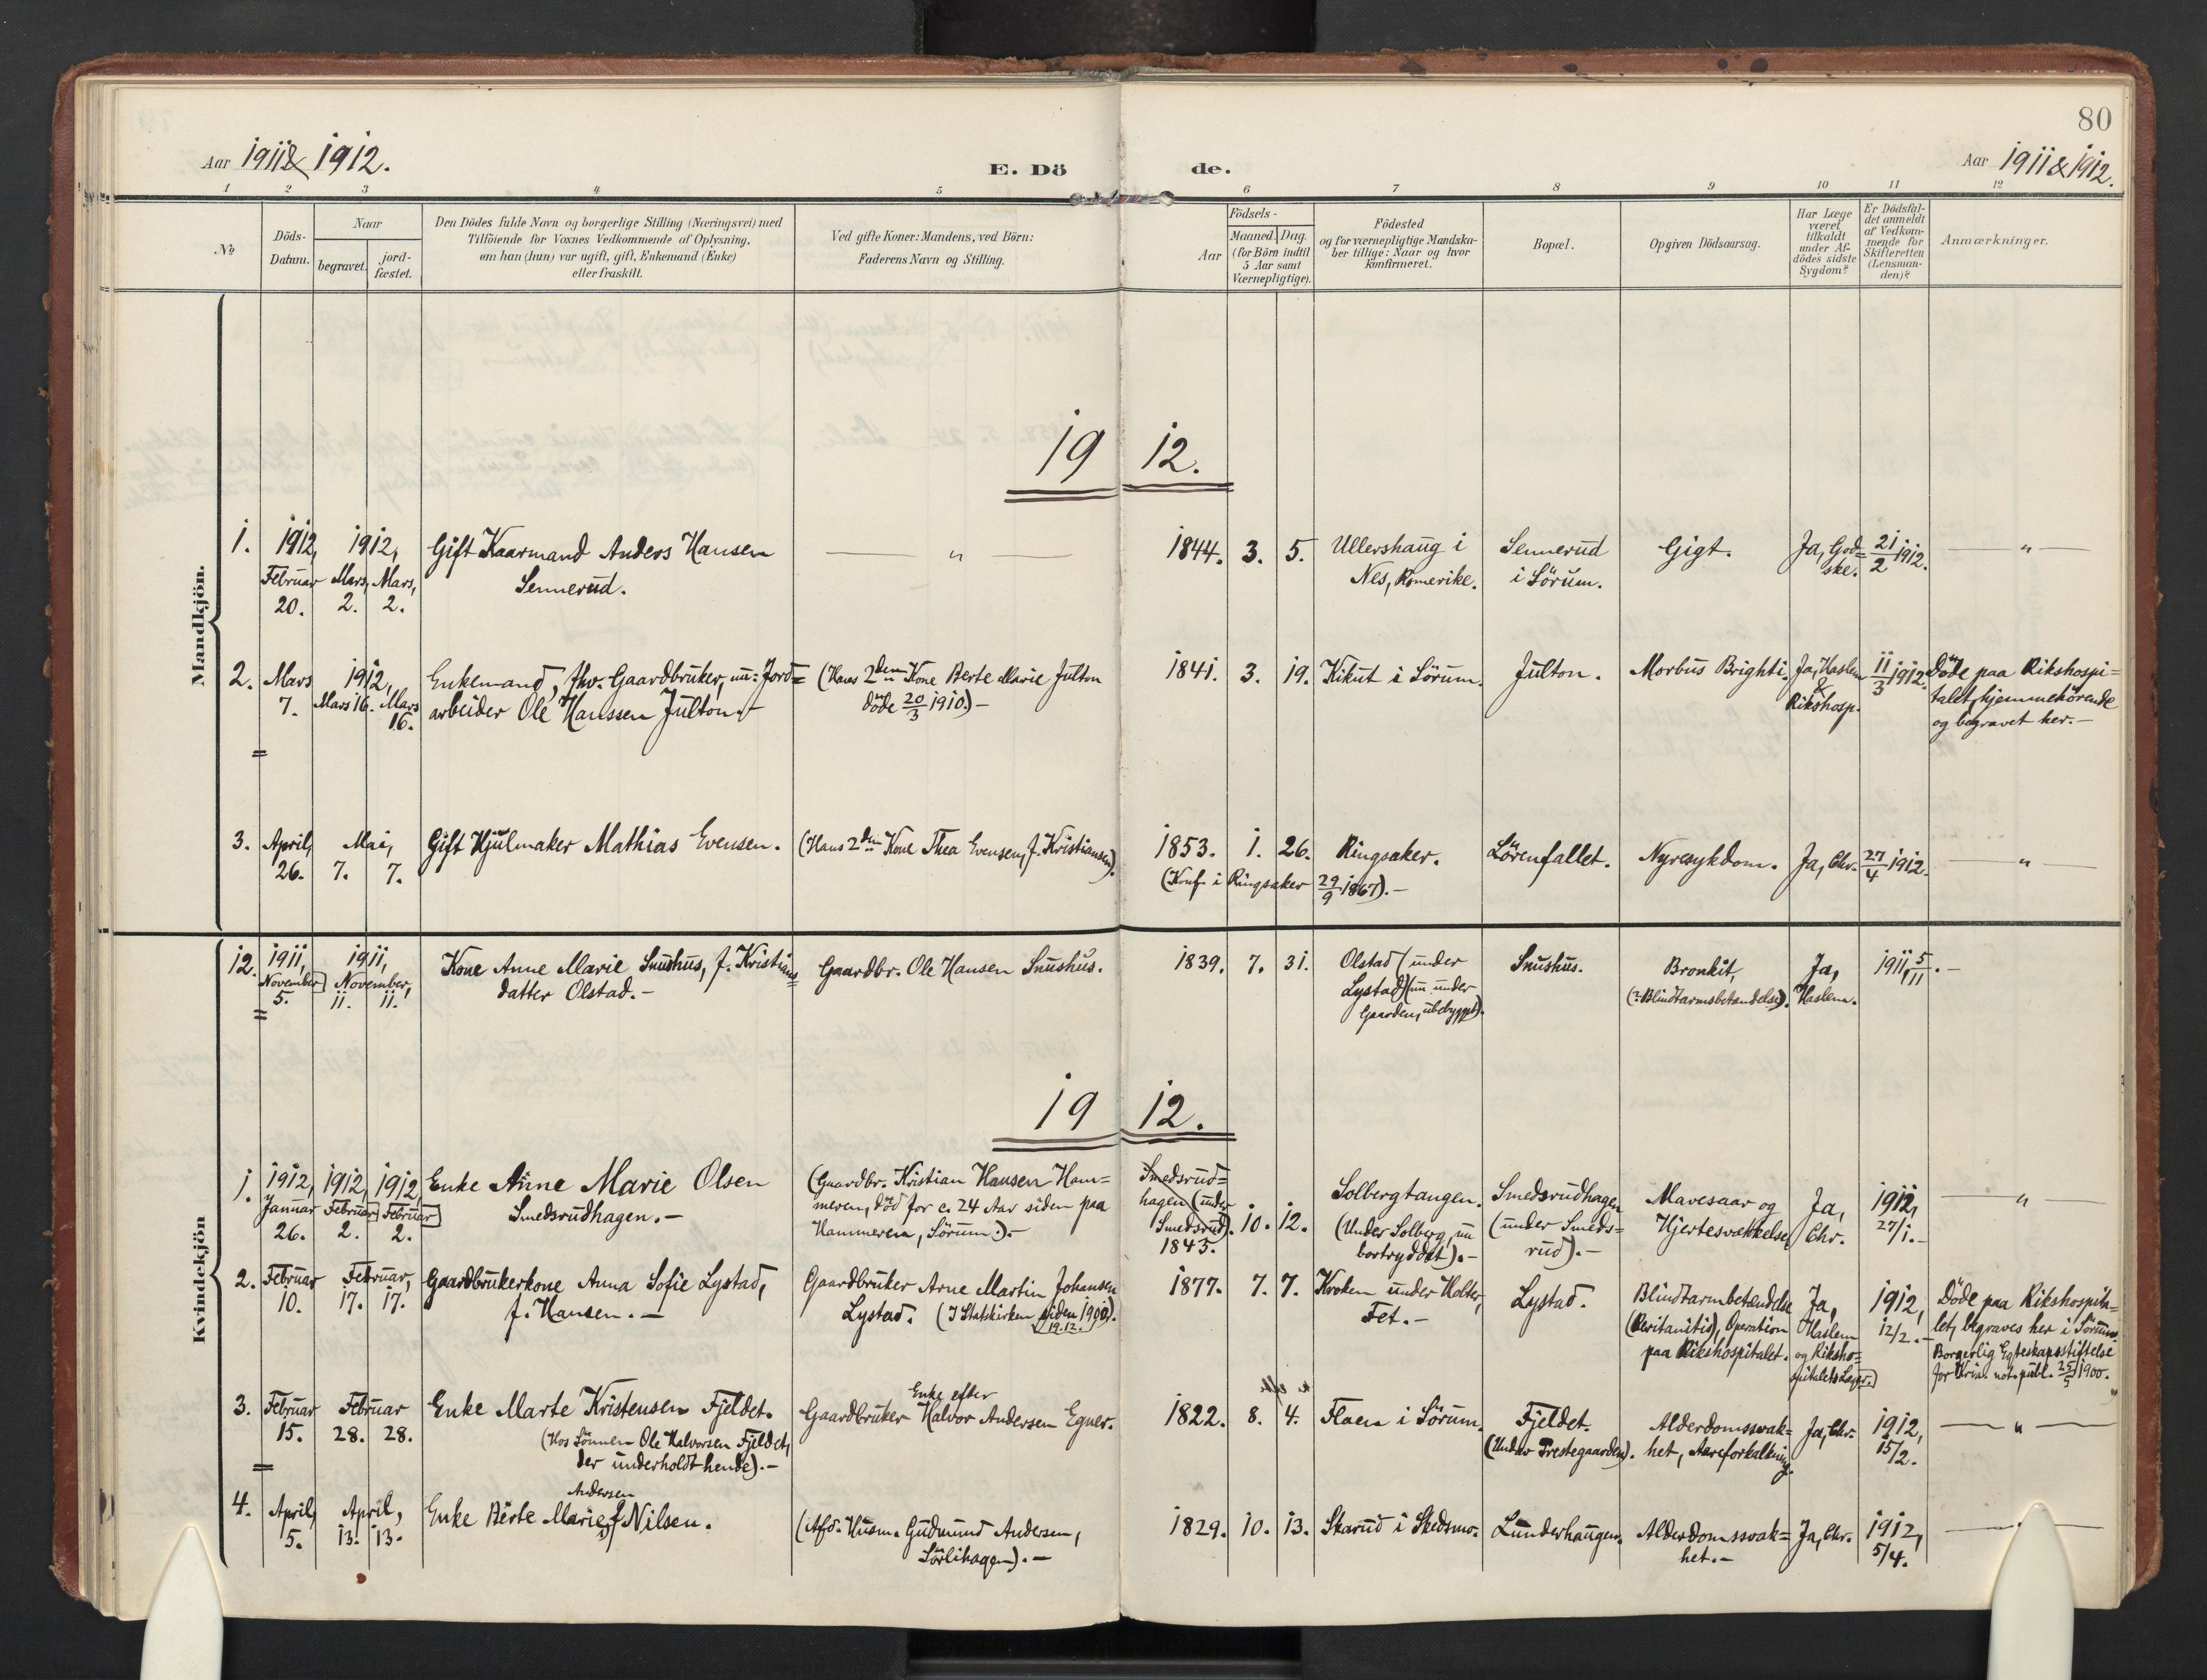 80
Aar 1911 & 1912.
E. Dö de.
Aar 1911 & 1912.
1 2 3 4 5 6 7 8 9 10 11 12
No
Döds-
Datum.
Naar
begravet.
jord-
fæstet.
Den Dödes fulde Navn og borgerlige Stilling (Næringsvei) med
Tilföiende for Voxnes Vedkommende af Oplysning,
om han (hun) var ugift, gift, Enkemand (Enke)
eller fraskilt.
Ved gifte Koner: Mandens, ved Börn:
Faderens Navn og Stilling.
Födsels-
Aar
Maaned. Dag.
(for Börn indtil
5 Aar samt
Værnepligtige).
Födested
og for værnepligtige Mandska-
ber tillige: Naar og hvor
konfirmeret.
Bopæl.
Opgiven Dödsaarsag.
Har Læge
været
tilkaldt
under Af-
dödes sidste
Sygdom?
Er Dödsfal-
det anmeldt
af Vedkom-
mende for
Skifteretten
(Lensman-
den)?
Anmærkninger.
Mandkjön.
19 12.
1. 1912, 1912, Gift Kaarmand Anders Hansen — " — 1844. 3. 5. Ullershaug i Sennerud Gigt. Ja, God= 21/2 1912. "—
Februar Mars, Mars, Sennerud. Nes, Romerike. i Sörum. ske.
20. 2. 2.
2. Mars 1912, Enkemand, fhv. Gaardbruker, nu: Jord= (Hans 2den Kone Berte Marie Julton 1841. 3. 19. Kikut i Sörum. Julton. Morbus Brighti. Ja, Haslem 11/3 1912. Döde paa Rikshospi=
7. Mars 16. Mars 16. arbeider Ole Hanssen Julton.— döde 20/3 1910.)— & Rikshosp. talet, hjemmehörende
og begravet her.—
3. April, Mai, Gift Hjulmaker Mathias Evensen. (Hans 2den Kone Thea Evensen, f. Kristiansen). 1853. 1. 26. Ringsaker. Lörenfallet. Nyresykdom. Ja, Chr. 27/4 1912. — " —
26. 7. 7. (Konf. i Ringsaker 29/9 1867).—
Kvindekjön
12. 1911, 1911, Kone Anne Marie Snushus, f. Kristians= Gaardbr. Ole Hansen Snushus. 1839. 7. 31. Olstad (under Snushus. Bronkit, Ja, 1911, 5/11.—
November November, datter Olstad.— Lystad) (nu under (?: Blindtarmsbetændelse). Haslem.
5. 11. 11. Gaarden, ubebygget).
19 12.
1. 1912, 1912, 1912, Enke Anne Marie Olsen (Gaardbr. Kristian Hansen Ham= Smedsrud= Solbergtangen. Smedsrudhagen Mavesaar og Ja, 1912, — " —
Januar Februar Februar Smedsrudhagen.— meren, död for c. 24 Aar siden paa hagen (under 10. 12. (Under Solberg, nu (under Smeds= Hjertesvækkelse Chr. 27/1.—
26. 2. 2. Hammeren, Sörum.).— Smedsrud). 1843. bortryddet).— rud).—
2. Februar Februar, Gaardbrukerkone Anna Sofie Lystad, Gaardbruker Arne Martin Johansen 1877. 7. 7. Kroken under Holter, Lystad. Blindtarmbetændelse Ja, 1912, Döde paa Rikshospita=
10. 17. 17. f. Hansen.— Lystad. (I Statskirken siden 1900). 19.12. Fet.— (Peritonitis), Operation Haslem 12/2.— let, begraves her i Sörum.
paa Rikshospitalet. og Riksho= Borgerlig Egteskapsstiftelse
spitalets Læger. for Kria. not. publ. 25/5 1900.
3. Februar Februar Enke Marte Kristensen Fjeldet. Enke efter 1822. 8. 4. Flaen i Sörum. Fjeldet. Alderdomssvak= Ja, Chr. 1912, — " —
15. 28. 28. (Hos Sönnen Ole Halvorsen Fjeldet, Gaardbruker Halvor Andersen Egner. (Under Prestegaarden). het, Aareforkalkning. 15/2.
der underholdt hende).—
4. April, April, Enke Berte Marie Andersen f. Nilsen. (Afd. Husm. Gudmund Andersen, 1829. 10. 13. Skarud i Skedsmo. Lunderhaugen. Alderdomssvak= Ja, Chr. 1912, —
5. 13. 13. Sörlihagen).— het.— 5/4.